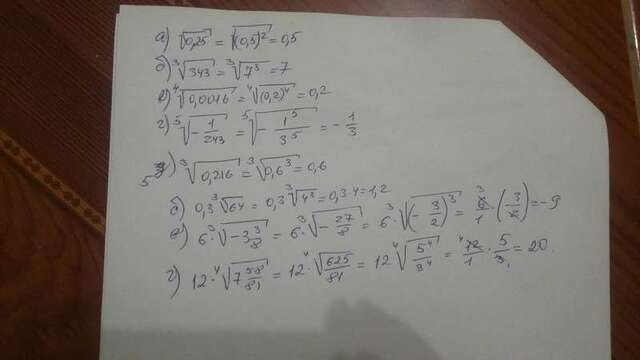 а) √0,25 = √(0,5)² = 0,5
б) ³√343 = ³√7³ = 7
в) ⁴√0,0016 = ⁴√(0,2)⁴ = 0,2
г) ⁵√-1/243 = ⁵√-1⁵/3⁵ = -1/3
5 ) ³√0,216 = ³√0,6³ = 0,6
б) 0,3 ³√64 = 0,3 ³√4³ = 0,3·4 = 1,2
в) 6·³√-3 3/8 = 6·³√-27/8 = 6·³√(-3/2)³ = 6/1·(-3/2) = -9
г) 12·⁴√7 58/81 = 12·⁴√625/81 = 12 ⁴√5⁴/3⁴ = 12/1·5/3 = 20.